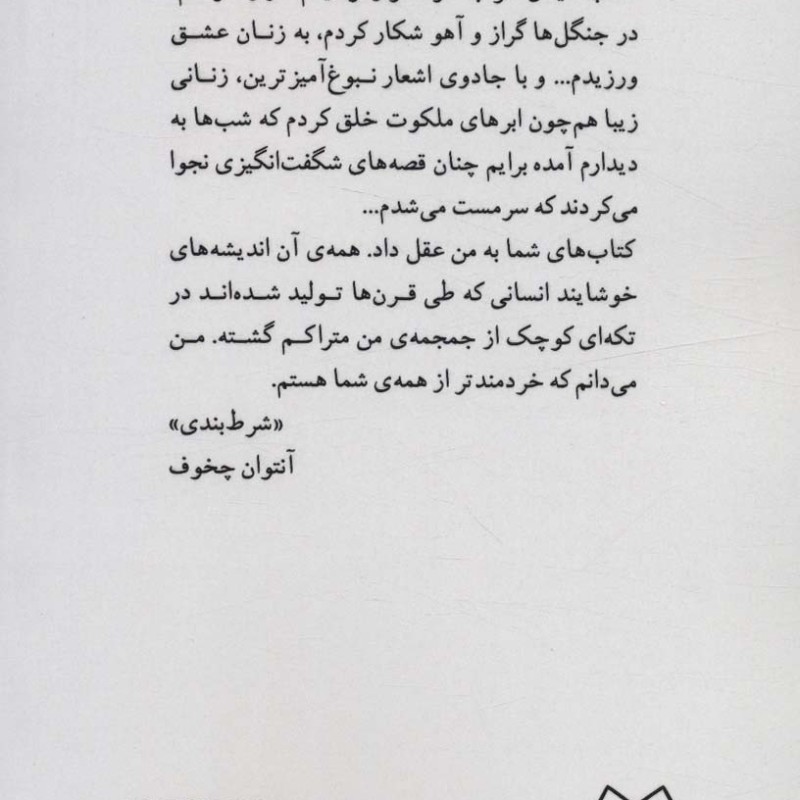 در جنگل‌ها گراز و آهو شکار کردم، به زنان عشق
ورزیدم... و با جادوی اشعار نبوغ‌آمیزترین، زنانی
زیبا هم‌چون ابرهای ملکوت خلق کردم که شب‌ها به
دیدارم آمده برایم چنان قصه‌های شگفت‌انگیزی نجوا
می‌کردند که سرمست می‌شدم...
کتاب‌های شما به من عقل داد. همه‌ی آن اندیشه‌های
خوشایند انسانی که طی قرن‌ها تولید شده‌اند در
تکه‌ای کوچک از جمجمه‌ی من متراکم گشته. من
می‌دانم که خردمندتر از همه‌ی شما هستم.
«شرط‌بندی»
آنتوان چخوف